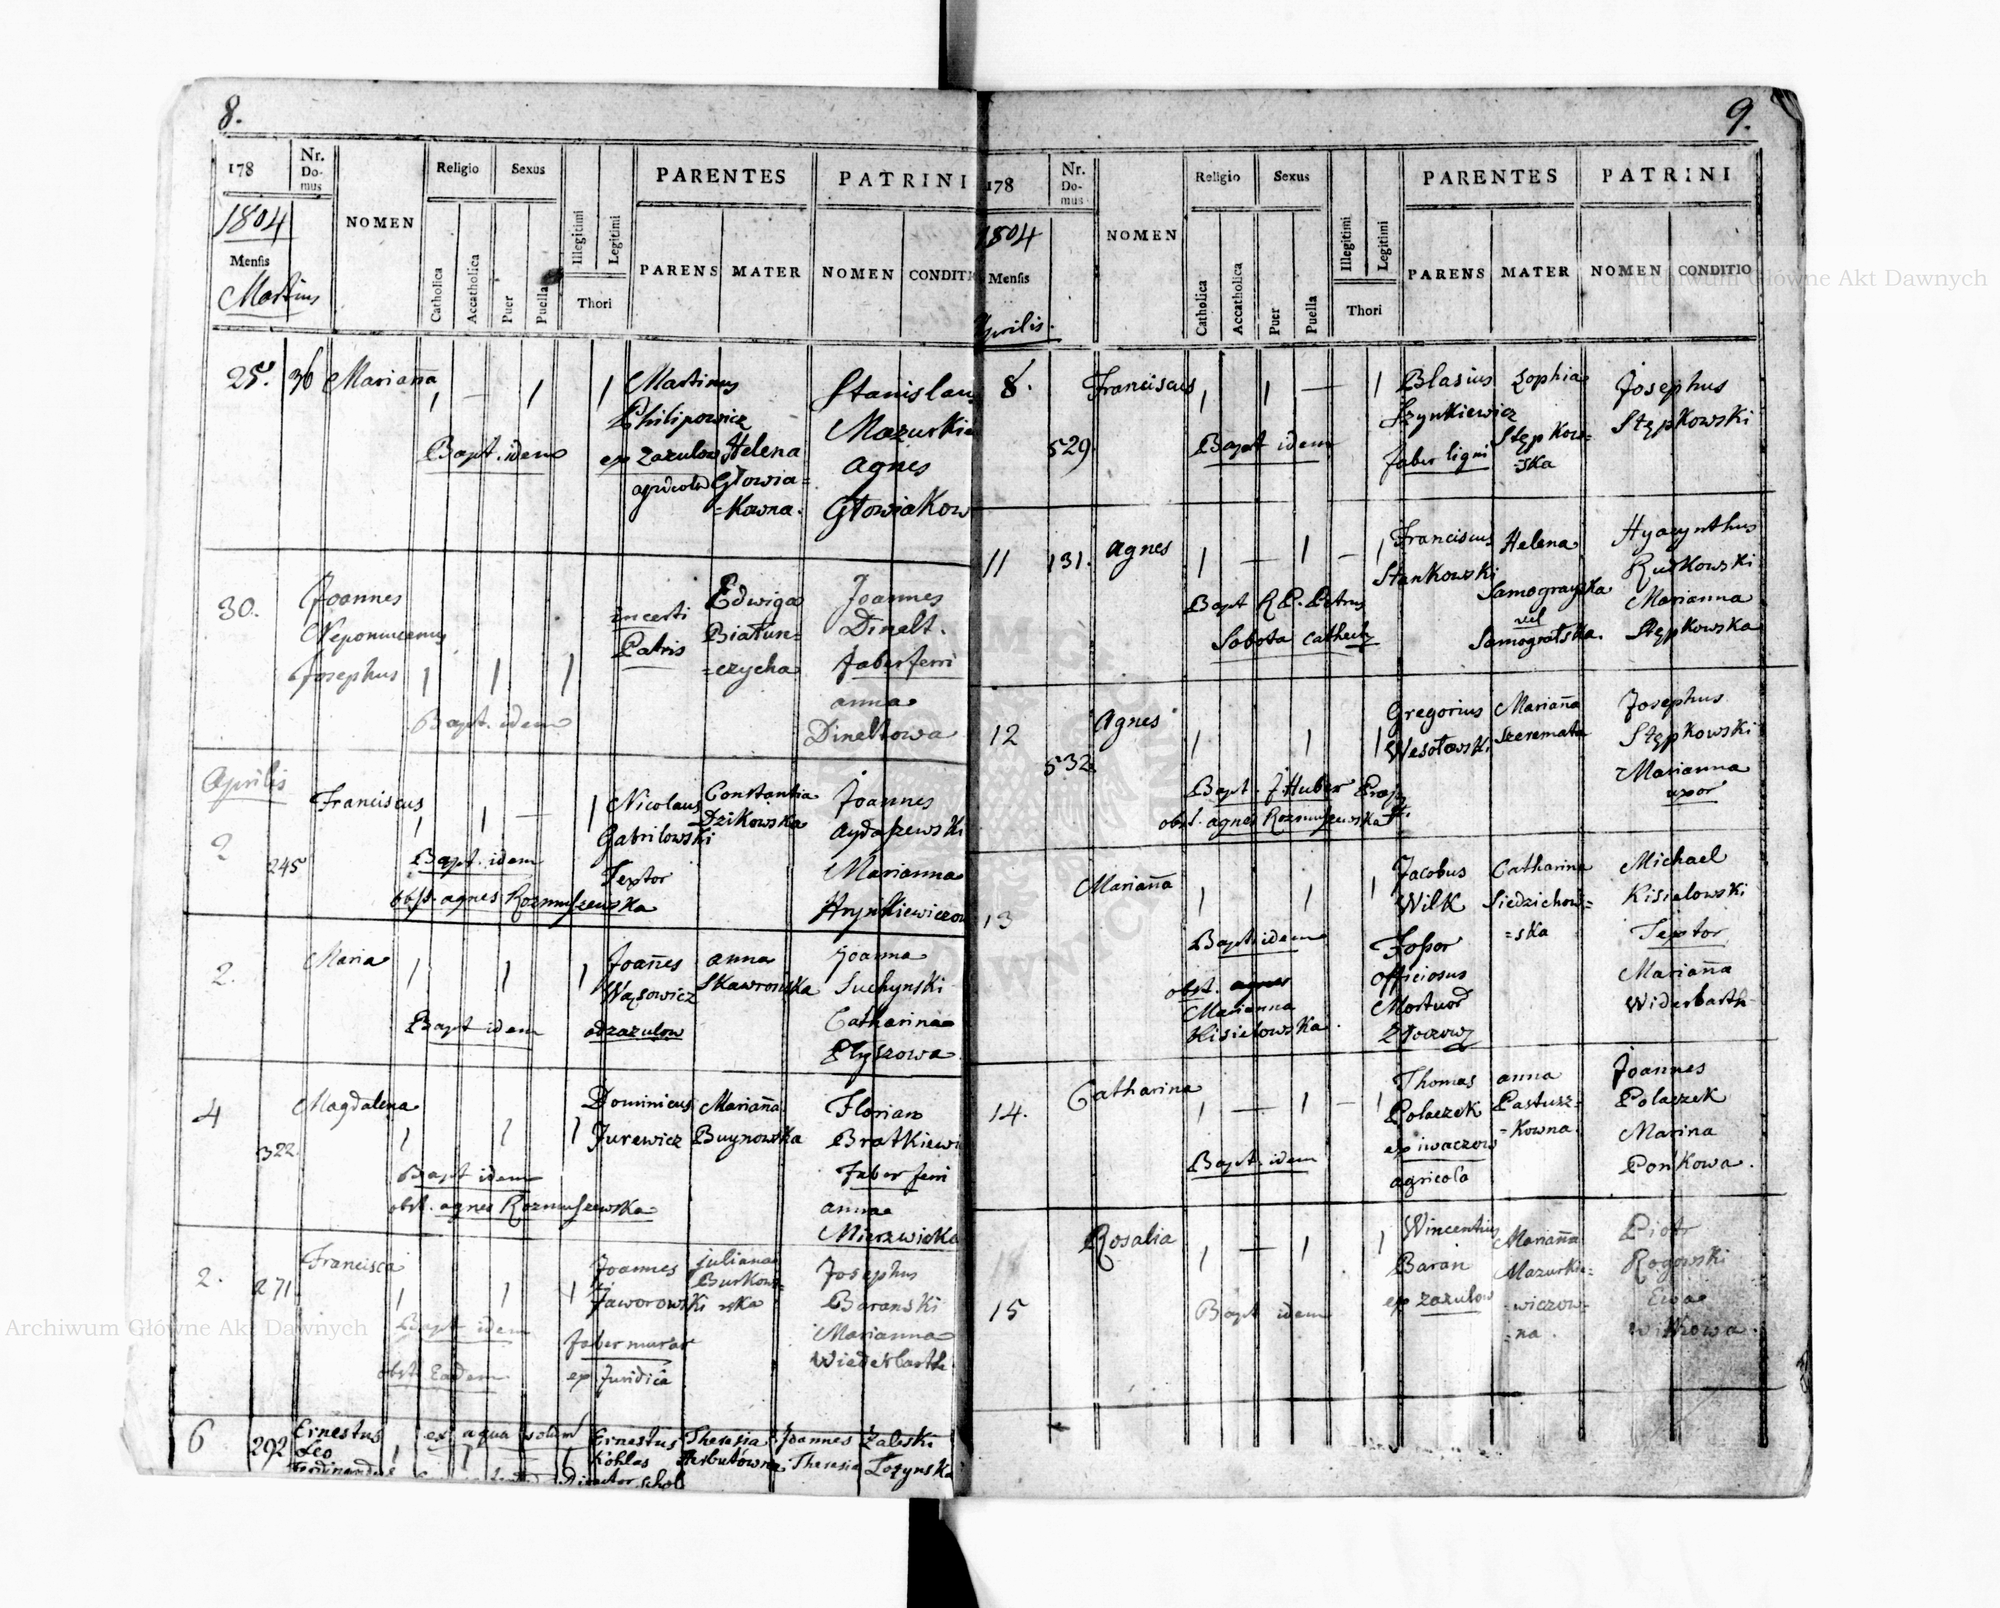 8.
178
Nr. Do-mus
NOMEN
Religio
Sexus
Catholica
Accatholica
Puer
Puella
Illegitimi
Legitimi
Thori
PARENTES
PARENS
MATER
PATRINI
NOMEN
CONDITI
1804
Mensis
Martius
25. 36 Marianna
Martinus
Philipowicz
ex Zazulow
agricola
Helena
Głowia=
=kowna.
Stanislaus
Mazurkie
Agnes
Głowiakow
Bapt. idem
30.
Joannes
Nepomucenus
Josephus
Bapt. idem
incerti
Patris
Edwiga
Białun=
=czycha
Joannes
Dinelt.
faber ferri
anna
Dineltowa
Aprilis
2
245
Franciscus
Bapt. idem
obst. agnes Rozmuszewska
Nicolaus
Gabrilowski
Textor
Constantia
Dzikowska
Joannes
Aydaszewski
Marianna
Hrynkiewiczow
2.
Maria
Bapt idem
Joañes
Wąsowicz
adzazulow
anna
Skawrońska
Joanna
Suchynski
Catharina
Elyszowa
4
322.
Magdalena
Bapt idem
obst. agnes Rozmuszewska
Dominicus
Jurewicz
Mariaña
Buynowska
Florian
Bratkiewi
Faber ferri
anna
Mierzwicka
2.
271
Francisca
Bapt idem
obst Eadem
Joannes
Jaworowski
faber murar
ex Juridica
Juliana
Burkow=
=ska
Josephus
Baranski
Marianna
Wiederbarth
6
292
Ernestus
Leo
Ferdinandus
ex aqua solum
Ernestus
Kohlas
Director schol
Theresia
Herbutówna
Joannes Zaleski
Theresia Łozynska
9.
178
Nr. Do-mus
NOMEN
Religio
Sexus
Catholica
Accatholica
Puer
Puella
Illegitimi
Legitimi
Thori
PARENTES
PARENS
MATER
PATRINI
NOMEN
CONDITIO
1804
Mensis
Aprilis.
8.
529.
Franciscus
Bapt idem
Blasius
Szynkiewicz
faber ligni
Zophia
Stępkow=
=ska
Josephus
Stępkowski
11
131.
Agnes
Bapt R P. Petrus
Sobota Cathech
Franciscus
Stankowski
Helena
Samograyska
vel
Samogratska.
Hyacynthus
Rutkowski
Marianna
Stępkowska
12
532.
Agnes
Bapt. J Huber
obst. agnes Rozmuszewska
Gregorius
Wesołowski
Mariaña
Szeremata
Josephus
Stępkowski
Marianna
uxor
13
Mariaña
Bapt idem
obst. agnes
Marianna
Kisielowska.
Jacobus
Wilk
Fossor
Officiosus
Mortuor
Złoczow
Catharina
Siedzichow=
=ska
Michael
Kisielowski
Textor
Mariaña
Widerbarth
14.
Catharina
Bapt. idem
Thomas
Polaczek
ex iwaczow
agricola
anna
Pastusz=
=kowna.
Joannes
Polaczek
Marina
Pońkowa.
15
Rosalia
Bapt idem
Wincentius
Baran
ex zazulow
Mariaña
Mazurkie=
wiczow=
=na.
Piotr
Rogowski
Ewa
Witkowa.
Archiwum Główne Akt Dawnych
Archiwum Główne Akt Dawnych